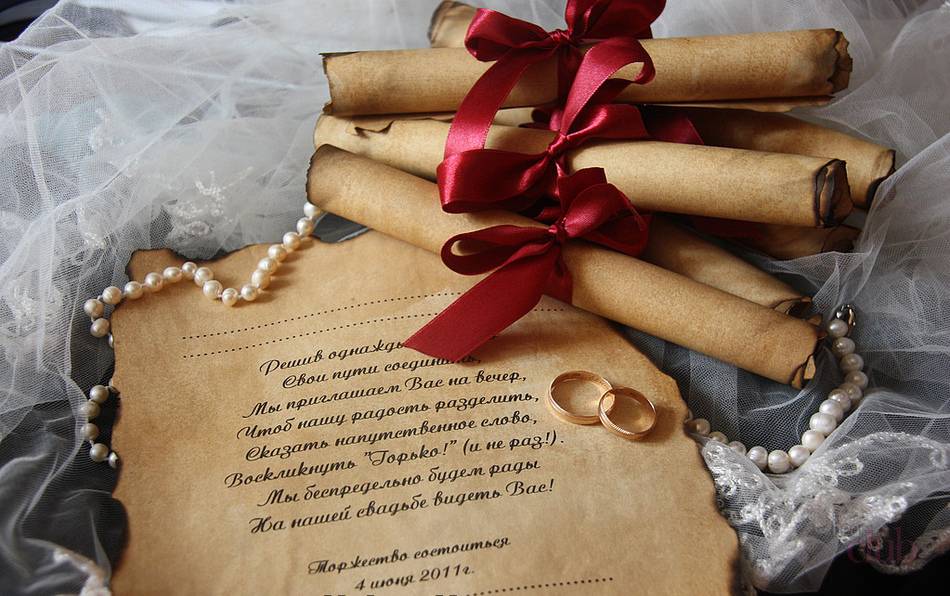 Решив однажды
Свои пути соединить,
Мы приглашаем Вас на вечер,
Чтоб нашу радость разделить,
Сказать напутственное слово,
Воскликнуть "Горько!" (и не раз!).
Мы беспредельно будем рады
На нашей свадьбе видеть Вас!
Торжество состоиться
4 июня 2011г.